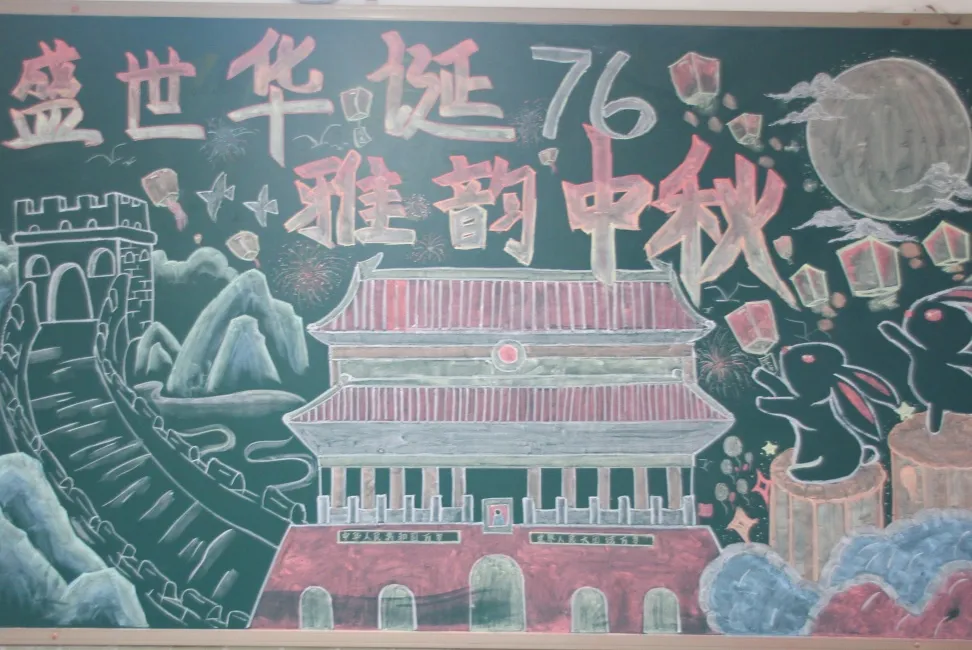 盛世华诞76
雅韵中秋